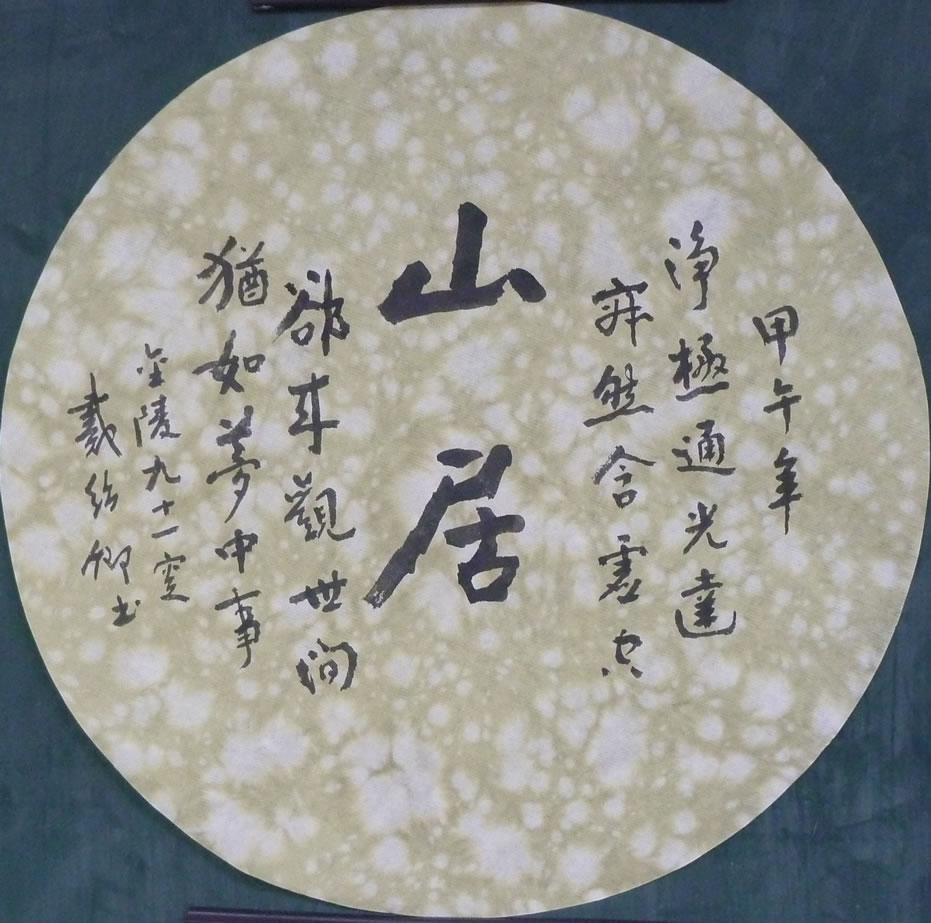 甲午年
净極通光達
寂然含虛空
山居
卻来觀世間
猶如夢中事
金陵九十一叟
戴紹卿书